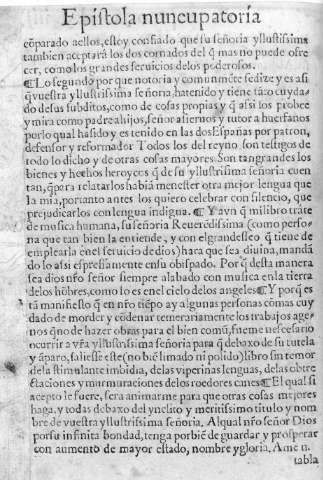 Epistola nuncupatoria
cõparado aellos, estoy confiado que su señoria yllustissima
tambien aceptará los dos cornados del q̃ mas no puede ofre
cer, como los grandes seruicios delos poderosos.
¶Lo segundo por que notoria y comunmẽte se dize y es asi
q̃ vuestra yllustrissima señoria, ha tenido y tiene tãto cuyda
do desus subditos, como de cosas propias y q̃ assi los probee
y mira como padre ahijos, señor asieruos y tutor a huerfanos
porlo qual hasido y es tenido en las dos Españas por patron,
defensor y reformador Todos los del reyno son testigos de
todo lo dicho y de otras cosas mayores. Son tan grandes los
bienes y hechos heroycos q̃ de su yllustrissima señoria cuen
tan, q̃ para relatarlos habiá menester otra mejor lengua que
la mia, por tanto antes los quiero celebrar con silencio, que
prejudicarlos con lengua indigna. ¶Y avn q̃ mi libro trate
de musica humana, su señoria Reuerẽdissima (como perso-
na que tan bien la entiende, y con el grandesseo q̃ tiene de
emplearla en el seruicio de dios) hara que sea diuina, manda
do lo assi espressamente en su obispado. Por q̃ desta manera
sea dios nr̃o señor siempre alabado con musica en la tierra
delos hõbres, como lo es en el cielo delos angeles ¶Y porq̃ es
tà manifiesto q̃ en nr̃o tiẽpo ay algunas personas cõmas cuy
dado de morder y cõdenar temerariamente los trabajos age-
nos q̃ no de hazer obras para el bien comũ, fueme necessario
ocurrir a vr̃a yllustrissima señoria para q̃ debaxo de su tutela
y ãparo, saliesse este (no biẽ limado ni polido) libro sin temor
dela stimulante imbidia, delas viperinas lenguas, delas obtre
ctaciones y murmuraciones delos roedores canes ¶El qual si
acepto le fuere, sera animarme para que otras cosas mejores
haga, y todas debaxo del ynclito y meritissimo titulo y nom
bre de vuestra yllustrissima señoria. Al qual nr̃o señor Dios
por su infinita bondad, tenga por biẽ de guardar y prosperar
con aumento de mayor estado, nombre y gloria. Ame n.
tabla